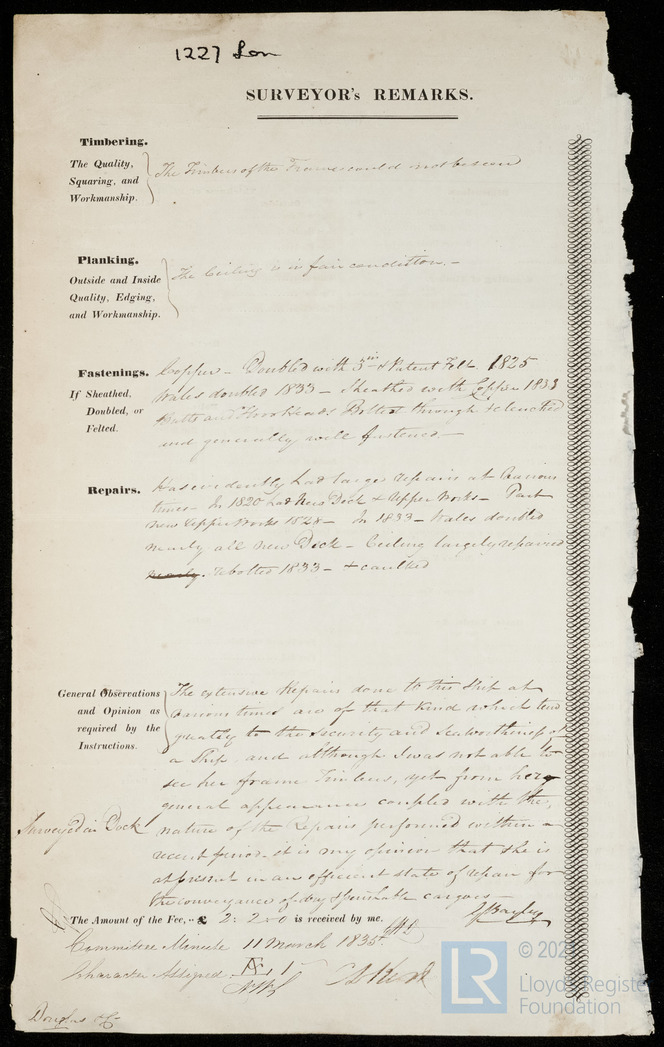 1227 Lon
SURVEYOR's REMARKS.
Timbering.
The Quality,
Squaring, and
Workmanship.
The Timbers of the Frame could not be seen
Planking.
Outside and Inside
Quality, Edging,
and Workmanship.
The Ceiling is in fair condition.-
Fastenings.
If Sheathed,
Doubled, or
Felted.
Copper - Doubled with 3 in & Patent Felt 1825
Wales doubled 1833 - Sheathed with Copper 1833
Butts and Hood heads Bolted through & clenched
and generally well fastened.-
Repairs.
Has evidently had large repairs at Various
times - In 1820 had New Deck & Upper Works - Part
new Upper Works 182 - In 1833 - Wales doubled
nearly all new Deck - Ceiling largely repaired
nearly. rebolted 1833 - & caulked
General Observations
and Opinion as
required by the
Instructions.
The extensive Repairs done to this Ship at
various times are of that kind which tend
greatly to the Security and Seaworthiness of
a Ship and although I was not able to
see her frame Timbers, yet from her
general appearance coupled with the
nature of the Repairs performed within a
recent period - it is my opinion that she is
at present in an efficient state of repair for
the conveyance of dry & perishable cargoes -
Surveyed in Dock
The Amount of the Fee, £ 2: 2: 0 is received by me,
G Bayley
Committee Minute 11 March 1835
Character Assigned Æ 1
Douglas & Co
© 202
LR
Lloyd's Registe
Foundation